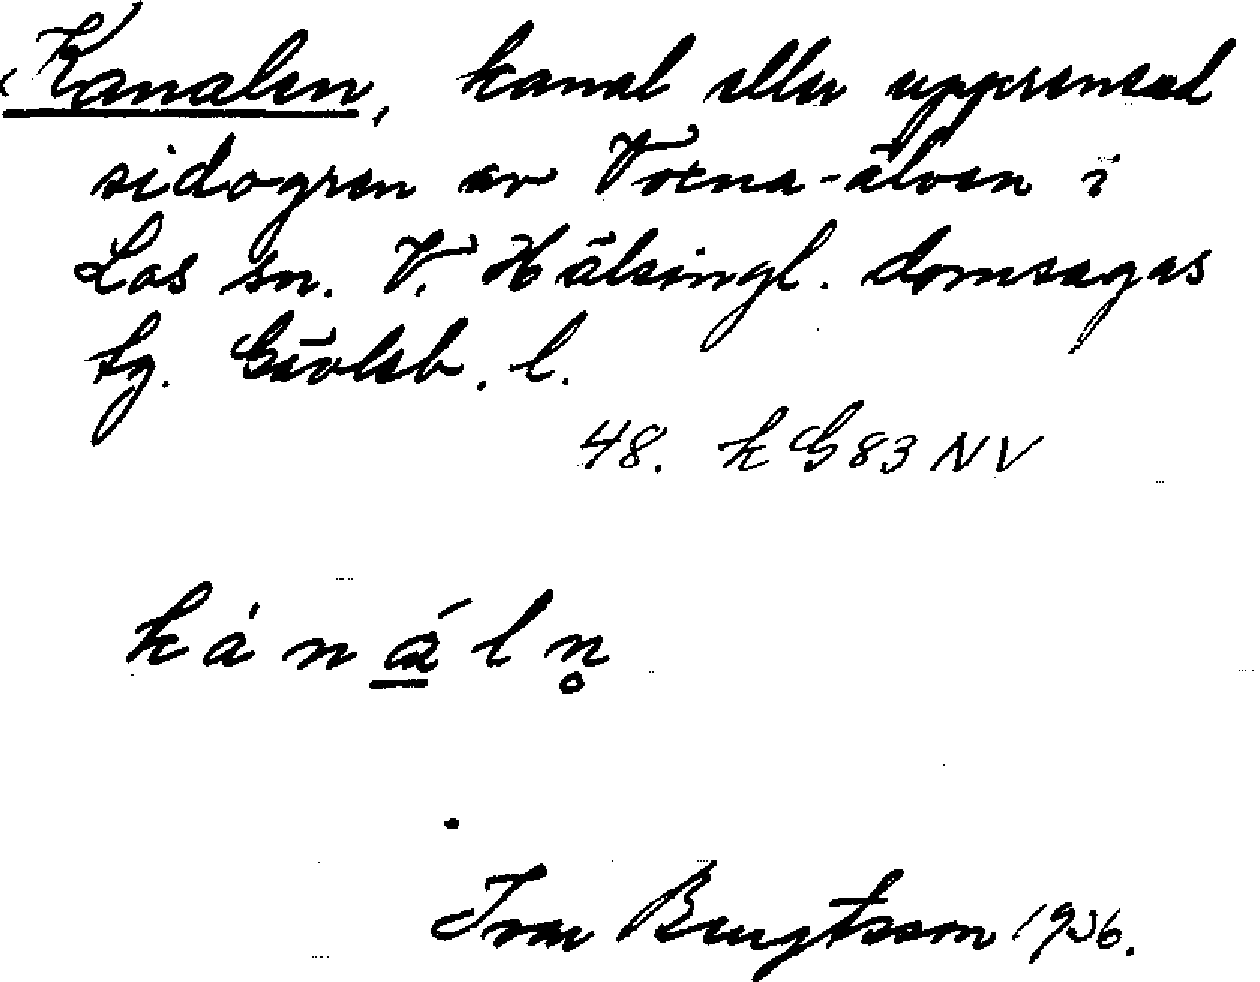 Kanalen, kanal eller upprensad
sidogren av Voxna-älven i
Los sn. V. Hälsingl. domsagas
tg. Gävleb. l.
48. k G 83 NV
k á n á l n̥
Ivar Bengtsson 1936.